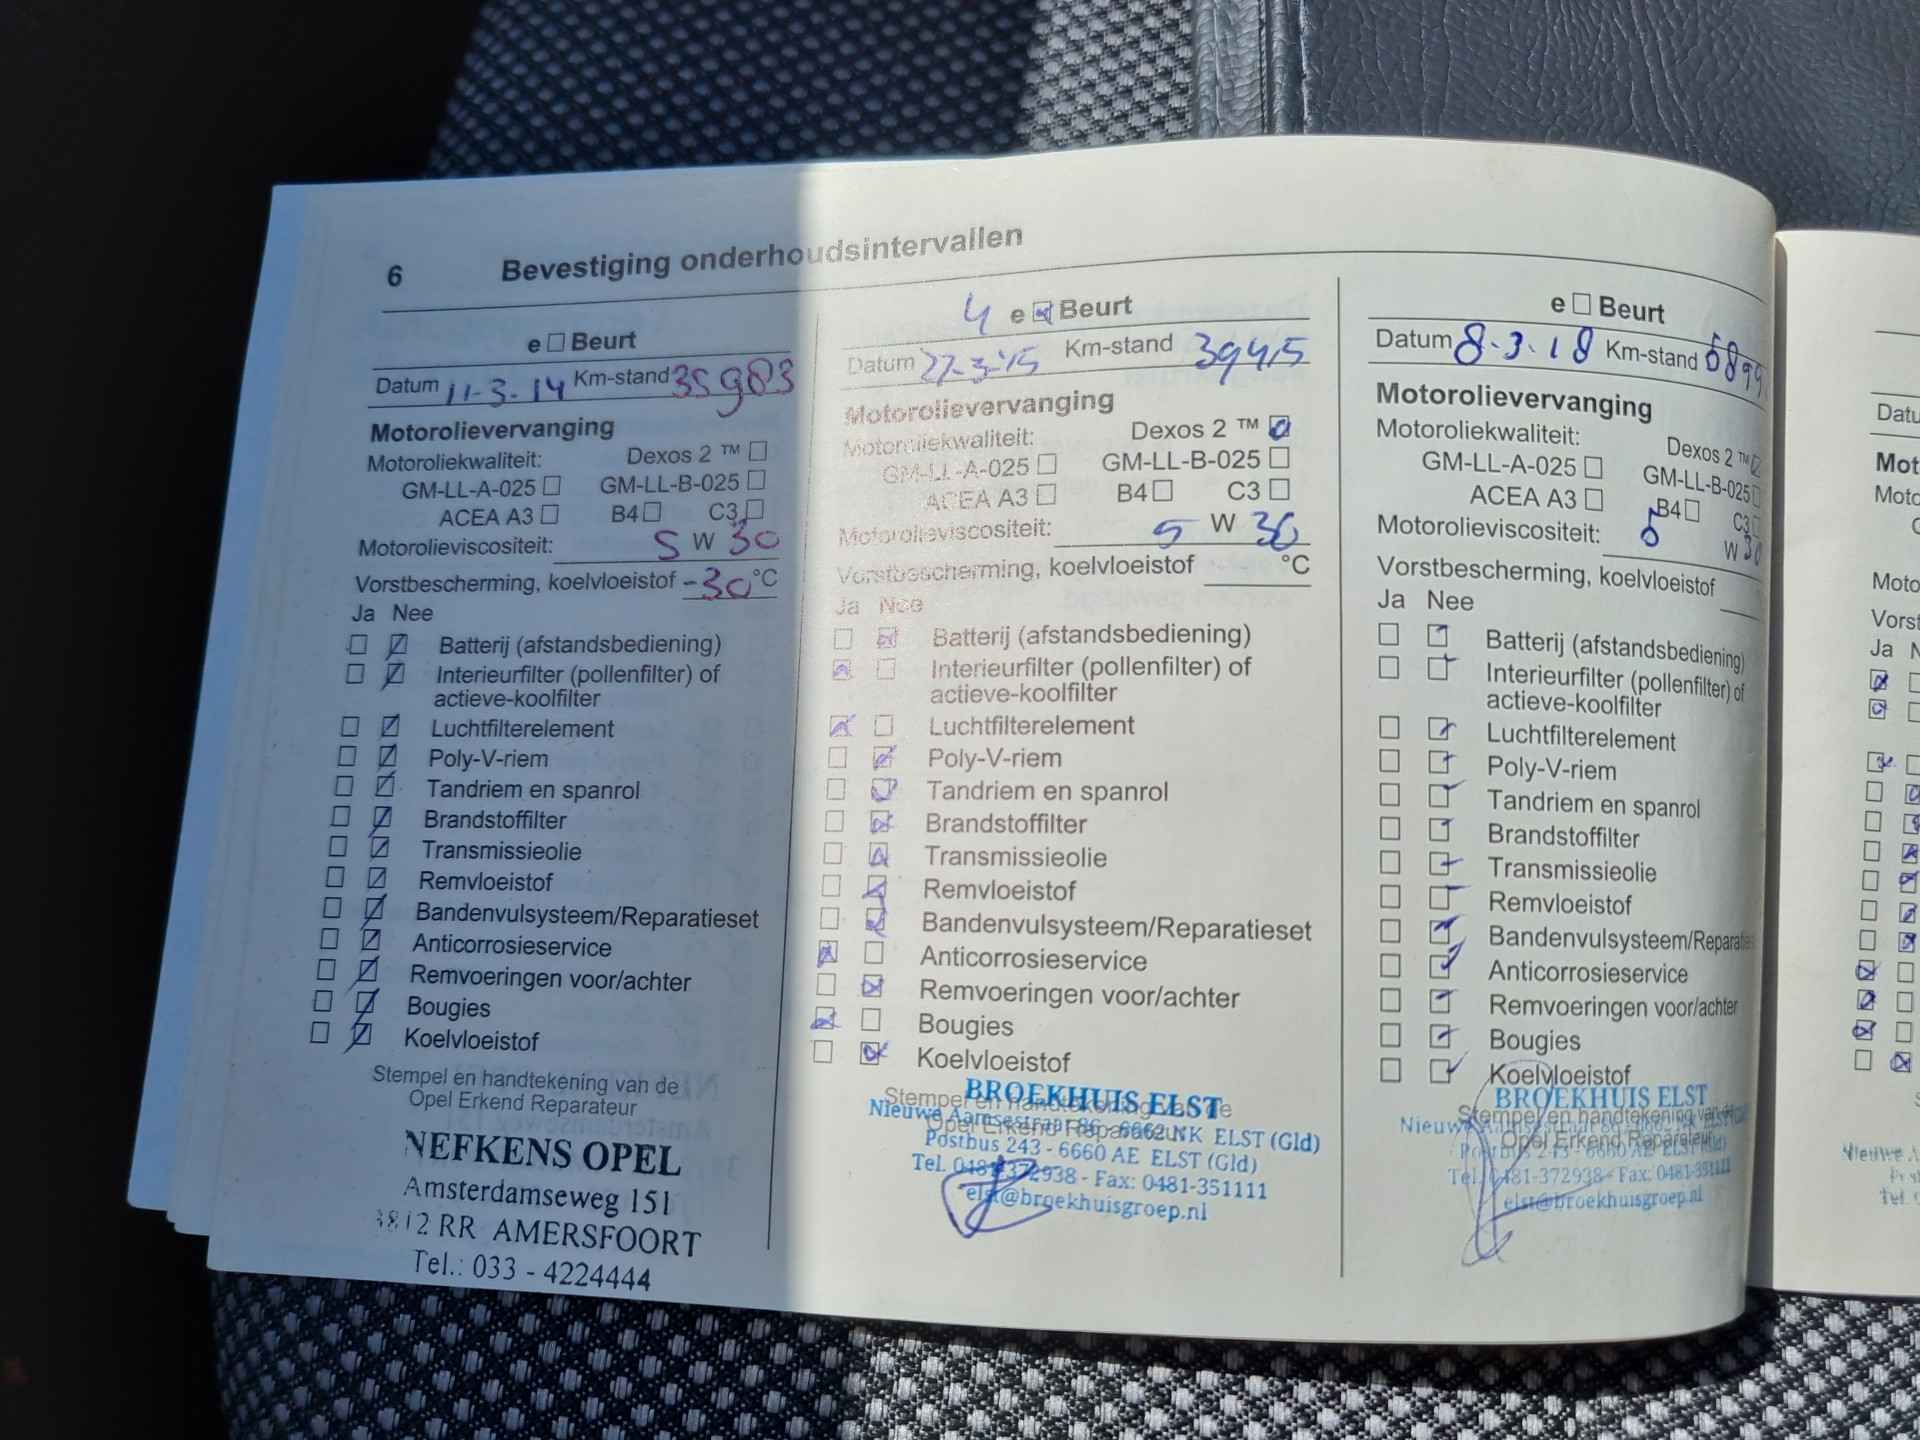 6 Bevestiging onderhoudsintervallen
e Beurt
Datum 11-3-14 Km-stand 35983
Motorolievervanging
Motoroliekwaliteit: Dexos 2 ™
GM-LL-A-025 GM-LL-B-025
ACEA A3 B4 C3
Motorolieviscositeit: 5 W 30
Vorstbescherming, koelvloeistof -30 °C
Ja Nee
Batterij (afstandsbediening)
Interieurfilter (pollenfilter) of
actieve-koolfilter
Luchtfilterelement
Poly-V-riem
Tandriem en spanrol
Brandstoffilter
Transmissieolie
Remvloeistof
Bandenvulsysteem/Reparatieset
Anticorrosieservice
Remvoeringen voor/achter
Bougies
Koelvloeistof
Stempel en handtekening van de
Opel Erkend Reparateur
NEFKENS OPEL
Amsterdamseweg 151
3812 RR AMERSFOORT
Tel.: 033 - 4224444
4 e Beurt
Datum 27-3-'15 Km-stand 39415
Motorolievervanging
Motoroliekwaliteit: Dexos 2 ™
GM-LL-A-025 GM-LL-B-025
ACEA A3 B4 C3
Motorolieviscositeit: 5 W 30
Vorstbescherming, koelvloeistof °C
Ja Nee
Batterij (afstandsbediening)
Interieurfilter (pollenfilter) of
actieve-koolfilter
Luchtfilterelement
Poly-V-riem
Tandriem en spanrol
Brandstoffilter
Transmissieolie
Remvloeistof
Bandenvulsysteem/Reparatieset
Anticorrosieservice
Remvoeringen voor/achter
Bougies
Koelvloeistof
Stempel en handtekening van de
Opel Erkend Reparateur
BROEKHUIS ELST
Nieuwe Aamsestraat 86 - 6662 NK ELST (Gld)
Postbus 243 - 6660 AE ELST (Gld)
Tel. 0481-372938 - Fax: 0481-351111
elst@broekhuisgroep.nl
e Beurt
Datum 8-3-18 Km-stand
Motorolievervanging
Motoroliekwaliteit: Dexos 2 ™
GM-LL-A-025 GM-LL-B-025
ACEA A3 B4 C3
Motorolieviscositeit: 5 W 30
Vorstbescherming, koelvloeistof
Ja Nee
Batterij (afstandsbediening)
Interieurfilter (pollenfilter) of
actieve-koolfilter
Luchtfilterelement
Poly-V-riem
Tandriem en spanrol
Brandstoffilter
Transmissieolie
Remvloeistof
Bandenvulsysteem/Reparaties
Anticorrosieservice
Remvoeringen voor/achter
Bougies
Koelvloeistof
Stempel en handtekening van de
Opel Erkend Reparateur
BROEKHUIS ELST
Nieuwe Aamsestraat 86 - 6662 NK ELST (Gld)
Postbus 243 - 6660 AE ELST (Gld)
Tel. 0481-372938 - Fax: 0481-351111
elst@broekhuisgroep.nl
Datu
Mot
Moto
Moto
Vorst
Ja N
Nieuwe A
Tel.